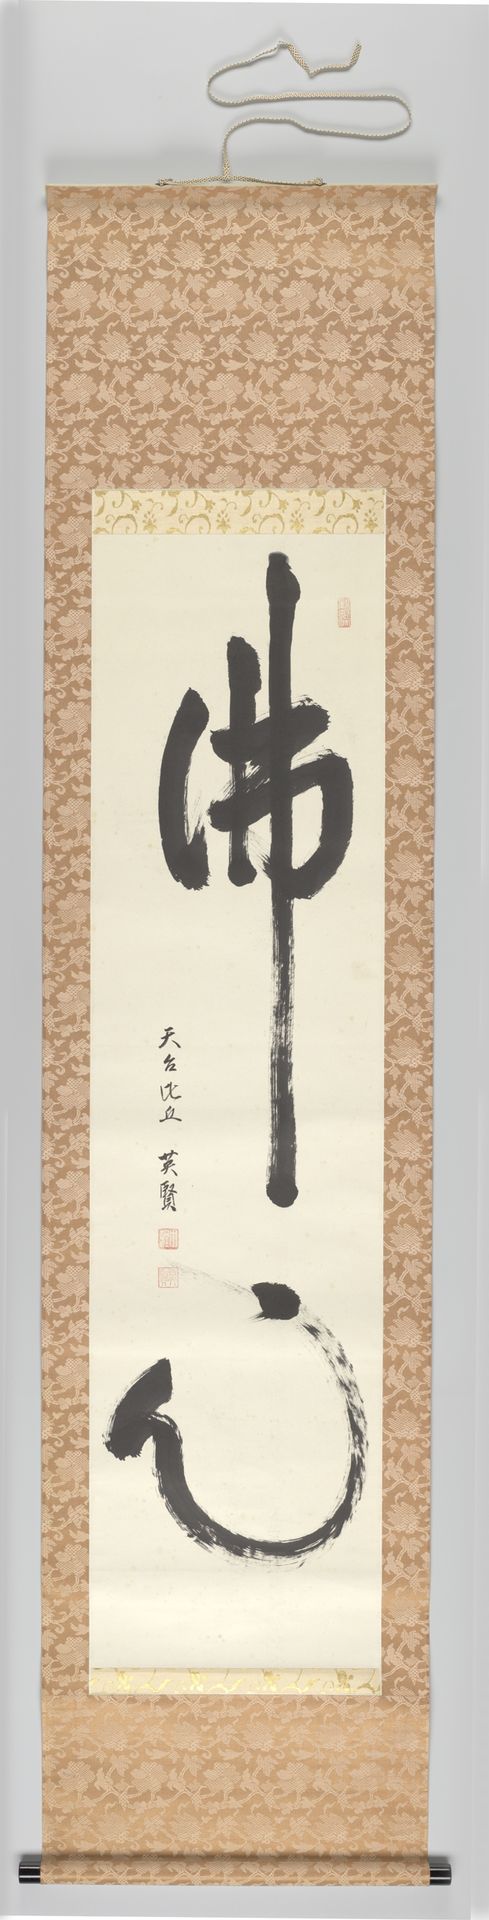 佛心
天台比丘 英賢